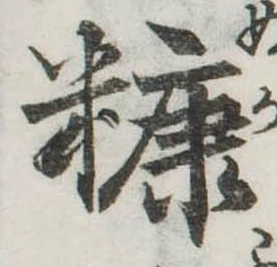 糠
ぬか